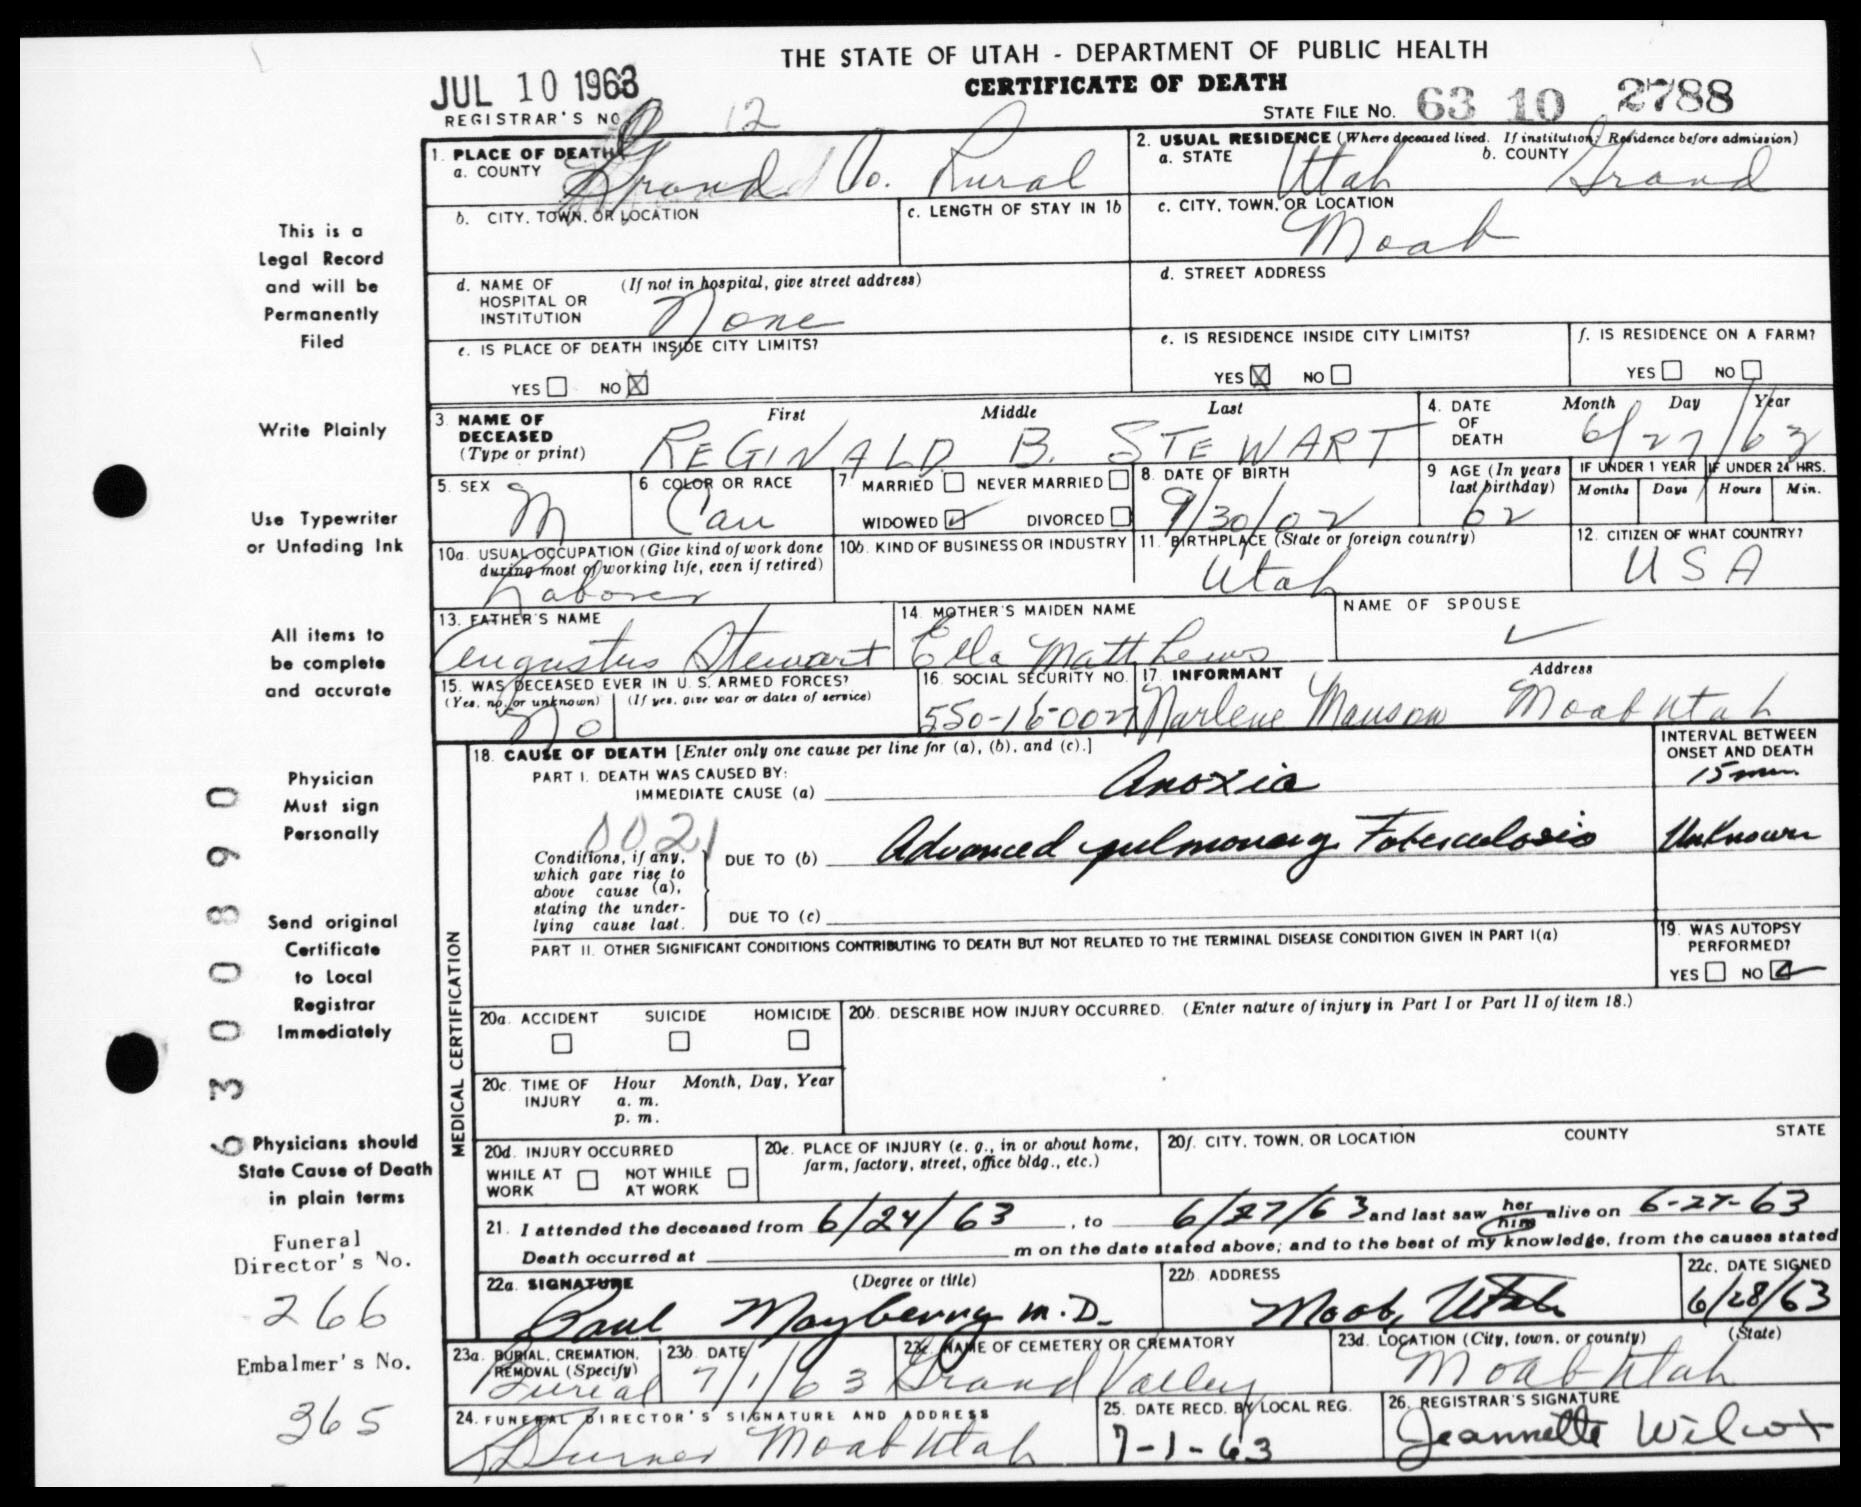 THE STATE OF UTAH - DEPARTMENT OF PUBLIC HEALTH
CERTIFICATE OF DEATH
JUL 10 1963
REGISTRAR'S NO. 12
STATE FILE NO. 63 10 2788
1. PLACE OF DEATH
a. COUNTY Grand Co. Rural
2. USUAL RESIDENCE (Where deceased lived. If institution: Residence before admission)
a. STATE Utah b. COUNTY Grand
b. CITY, TOWN, OR LOCATION
c. LENGTH OF STAY IN 1b
c. CITY, TOWN, OR LOCATION
Moab
d. NAME OF HOSPITAL OR INSTITUTION (If not in hospital, give street address)
None
d. STREET ADDRESS
e. IS PLACE OF DEATH INSIDE CITY LIMITS?
YES NO X
e. IS RESIDENCE INSIDE CITY LIMITS?
YES X NO
f. IS RESIDENCE ON A FARM?
YES NO
3. NAME OF DECEASED (Type or print)
First Middle Last
REGINALD B. STEWART
4. DATE OF DEATH Month Day Year
6/27/63
5. SEX
M
6 COLOR OR RACE
Cau
7 MARRIED NEVER MARRIED
WIDOWED ✓ DIVORCED
8. DATE OF BIRTH
9/30/02
9 AGE (In years last birthday)
62
IF UNDER 1 YEAR IF UNDER 24 HRS.
Months Days Hours Min.
10a. USUAL OCCUPATION (Give kind of work done during most of working life, even if retired)
Laborer
10b. KIND OF BUSINESS OR INDUSTRY
11. BIRTHPLACE (State or foreign country)
Utah
12. CITIZEN OF WHAT COUNTRY?
USA
13. FATHER'S NAME
Augustus Stewart
14. MOTHER'S MAIDEN NAME
Ella Matthews
NAME OF SPOUSE
✓
15. WAS DECEASED EVER IN U. S. ARMED FORCES?
(Yes, no, or unknown) (If yes, give war or dates of service)
No
16. SOCIAL SECURITY NO.
550-16-0027
17. INFORMANT Address
Marlene Manson Moab Utah
MEDICAL CERTIFICATION
18. CAUSE OF DEATH [Enter only one cause per line for (a), (b), and (c).]
INTERVAL BETWEEN ONSET AND DEATH
PART I. DEATH WAS CAUSED BY:
IMMEDIATE CAUSE (a) Anoxia 15 min.
0021
Conditions, if any, which gave rise to above cause (a), stating the underlying cause last.
DUE TO (b) Advanced pulmonary Toberculosis Unknown
DUE TO (c)
PART II. OTHER SIGNIFICANT CONDITIONS CONTRIBUTING TO DEATH BUT NOT RELATED TO THE TERMINAL DISEASE CONDITION GIVEN IN PART I(a)
19. WAS AUTOPSY PERFORMED?
YES NO ✓
20a. ACCIDENT SUICIDE HOMICIDE
20b. DESCRIBE HOW INJURY OCCURRED. (Enter nature of injury in Part I or Part II of item 18.)
20c. TIME OF INJURY Hour Month, Day, Year
a. m.
p. m.
20d. INJURY OCCURRED
WHILE AT WORK NOT WHILE AT WORK
20e. PLACE OF INJURY (e. g., in or about home, farm, factory, street, office bldg., etc.)
20f. CITY, TOWN, OR LOCATION COUNTY STATE
21. I attended the deceased from 6/24/63, to 6/27/63 and last saw her him alive on 6-27-63
Death occurred at m on the date stated above; and to the best of my knowledge, from the causes stated
22a. SIGNATURE (Degree or title)
Paul Mayberry M.D.
22b. ADDRESS
Moab, Utah
22c. DATE SIGNED
6/28/63
23a. BURIAL, CREMATION, REMOVAL (Specify)
Burial
23b. DATE
7/1/63
23c. NAME OF CEMETERY OR CREMATORY
Grand Valley
23d. LOCATION (City, town, or county) (State)
Moab Utah
24. FUNERAL DIRECTOR'S SIGNATURE AND ADDRESS
Moab Utah
25. DATE RECD. BY LOCAL REG.
7-1-63
26. REGISTRAR'S SIGNATURE
Jeannette Wilcox
This is a
Legal Record
and will be
Permanently
Filed
Write Plainly
Use Typewriter
or Unfading Ink
All items to
be complete
and accurate
Physician
Must sign
Personally
Send original
Certificate
to Local
Registrar
Immediately
Physicians should
State Cause of Death
in plain terms
Funeral
Director's No.
266
Embalmer's No.
365
6300890